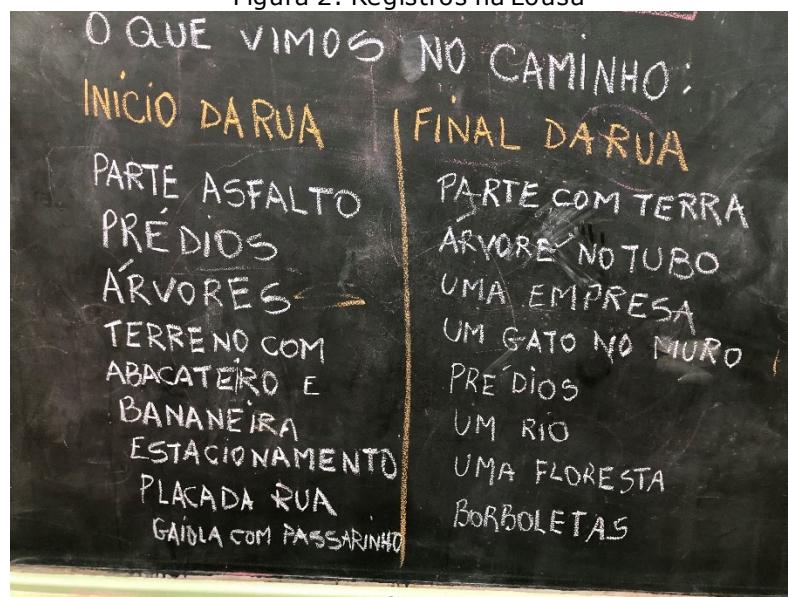 Figura 2: Registros na Lousa
O QUE VIMOS NO CAMINHO:
INÍCIO DA RUA
PARTE ASFALTO
PRÉDIOS
ÁRVORES
TERRENO COM
ABACATEIRO E
BANANEIRA
ESTACIONAMENTO
PLACA DA RUA
GAIOLA COM PASSARINHO
FINAL DA RUA
PARTE COM TERRA
ÁRVORE NO TUBO
UMA EMPRESA
UM GATO NO MURO
PRÉDIOS
UM RIO
UMA FLORESTA
BORBOLETAS